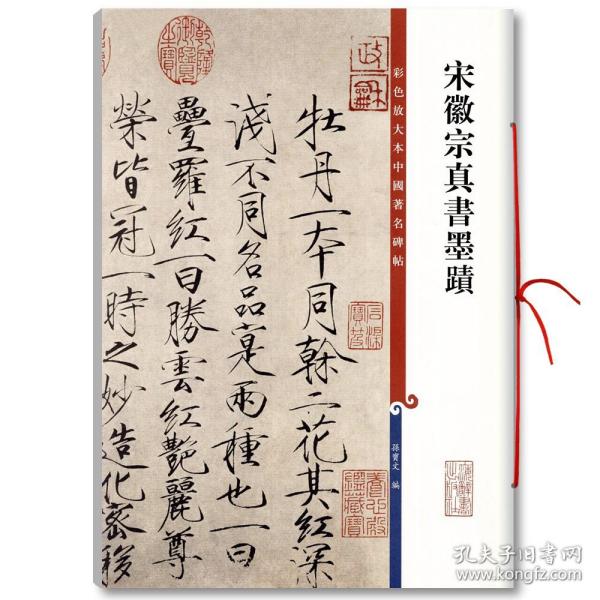 宋徽宗真書墨蹟
彩色放大本中國著名碑帖
孫寶文 編
牡丹一本同幹二花其紅深
淺不同名品寔兩種也一曰
疊羅紅一曰勝雲紅艷麗尊
榮皆冠一時之妙造化密移
政龢
乾隆御覽之寶
孔夫子旧书网
www.kongfz.com